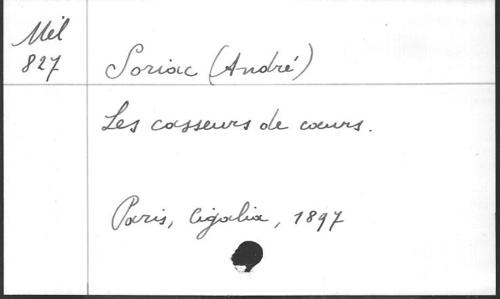 Mél
827
Soriac (André)
Les casseurs de cœurs.
Paris, Cigalia, 1897